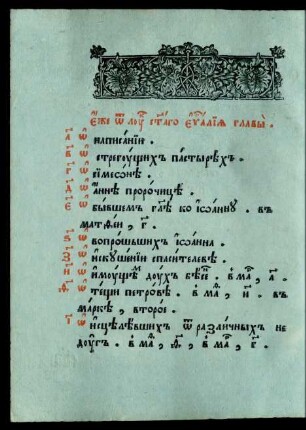 Є҆́же ѿ лꙋ. ст҃а́гѡ є҆ѵⷢ҇а́лїѧ главы̀.
а҃ ѡ҆ написа́нїи.
в҃ ѡ҆ стрегꙋ́щихъ па́стырехъ.
г҃ ѡ҆ сїмеѡ́нѣ.
д҃ ѡ҆ а҆́ннѣ проро́чицѣ.
є҃ ѡ҆ бы́вшемъ гл҃ѣ ко і҆ѡа́ннꙋ. въ
матѳе́и, г҃.
ѕ҃ ѡ҆ вопро́шьшихъ і҆ѡа́нна.
з҃ ѡ҆ и҆скꙋше́нїи спаси́телевѣ.
и҃ ѡ҆ и҆мꙋ́щемъ дꙋ́хъ бѣ́съ. в̾ ма, а҃.
ѳ҃ ѡ҆ те́щи петро́вѣ. в̾ ма, и҃. въ
ма́ркѣ, второ́е.
і҃ ѡ҆ и҆сцѣлѣ́вшихъ ѿ разли́чныхъ не
дꙋ́гъ. в̾ ма, ѳ҃. в̾ мар, г҃.